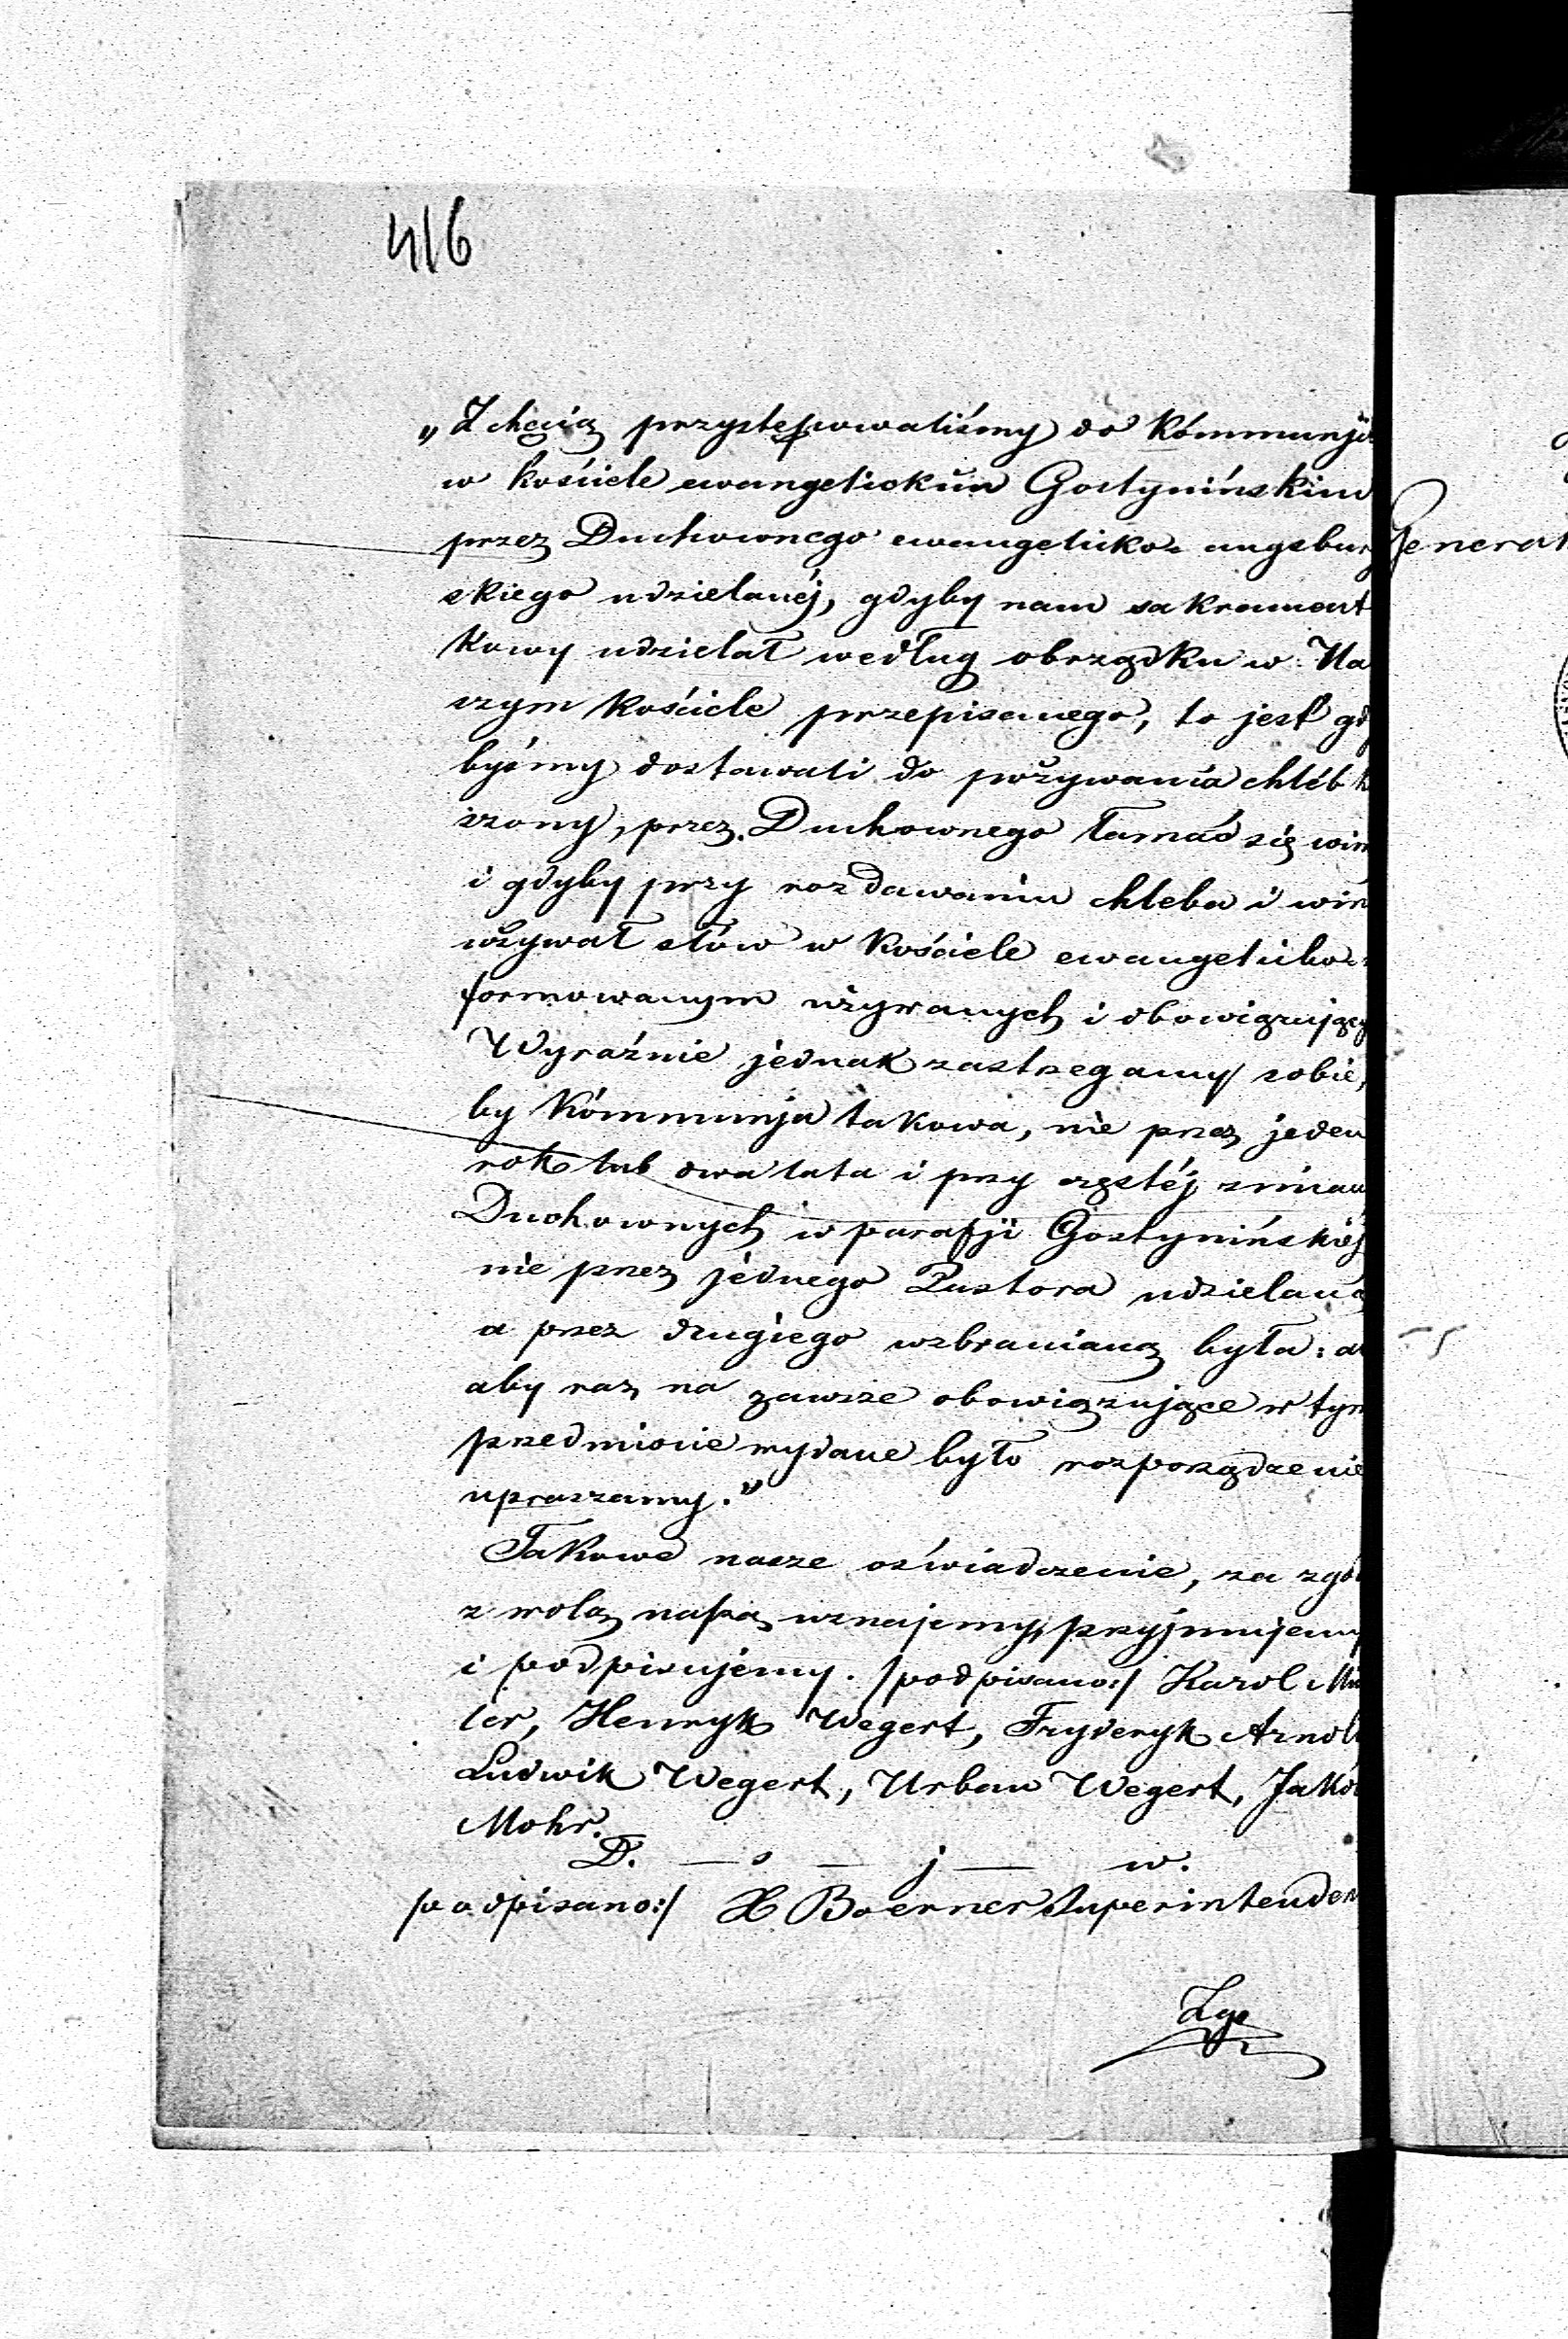 416
„Z chęcią przystępowaliśmy do Kómmunji
w kościele ewangelickim Gostynińskim
przez Duchownego ewangelicko= augsbur
skiego udzielanéj, gdyby nam sakrament
kowy udzielał według obrządku w Na
szym kościele przepisanego, to jest gd
byśmy dostawali do pożywania chléb
szony, przez Duchownego łamać się win
i gdyby przy rozdawaniu chleba i win
używał słów w kościele ewangelicko=
formowanym używanych i obowiązując
Wyraźnie jednak zastrzegamy sobie,
by Kómmunja takowa, nie przez jeden
rok lub dwa lata i przy częstéj zmian
Duchownych w parafji Gostynińskiéj
nie przez jednego Pastora udzielaną
a przez drugiego wzbranianą była: al
aby raz na zawsze obowiązujące w tym
przedmiocie wydane było rozporządzenie
upraszamy."
Takowe nasze oświadczenie, za zgod
z wolą naszą uznajemy, przyjmujemy
i podpisujemy. /podpisano:/ Karol Mil
ler, Henryk Wegert, Fryderyk Arnold
Ludwik Wegert, Urban Wegert, Jakób
Mohr.
D. — s — j — w.
podpisano:/ X Boerner Superintenden
General